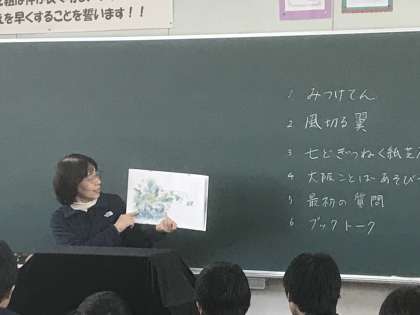 えを早くすることを誓います!!
1 みつけてん
2 風切る翼
3 七どぎつねく紙芝
4 大阪ことばあそび
5 最初の質問
6 ブックトーク